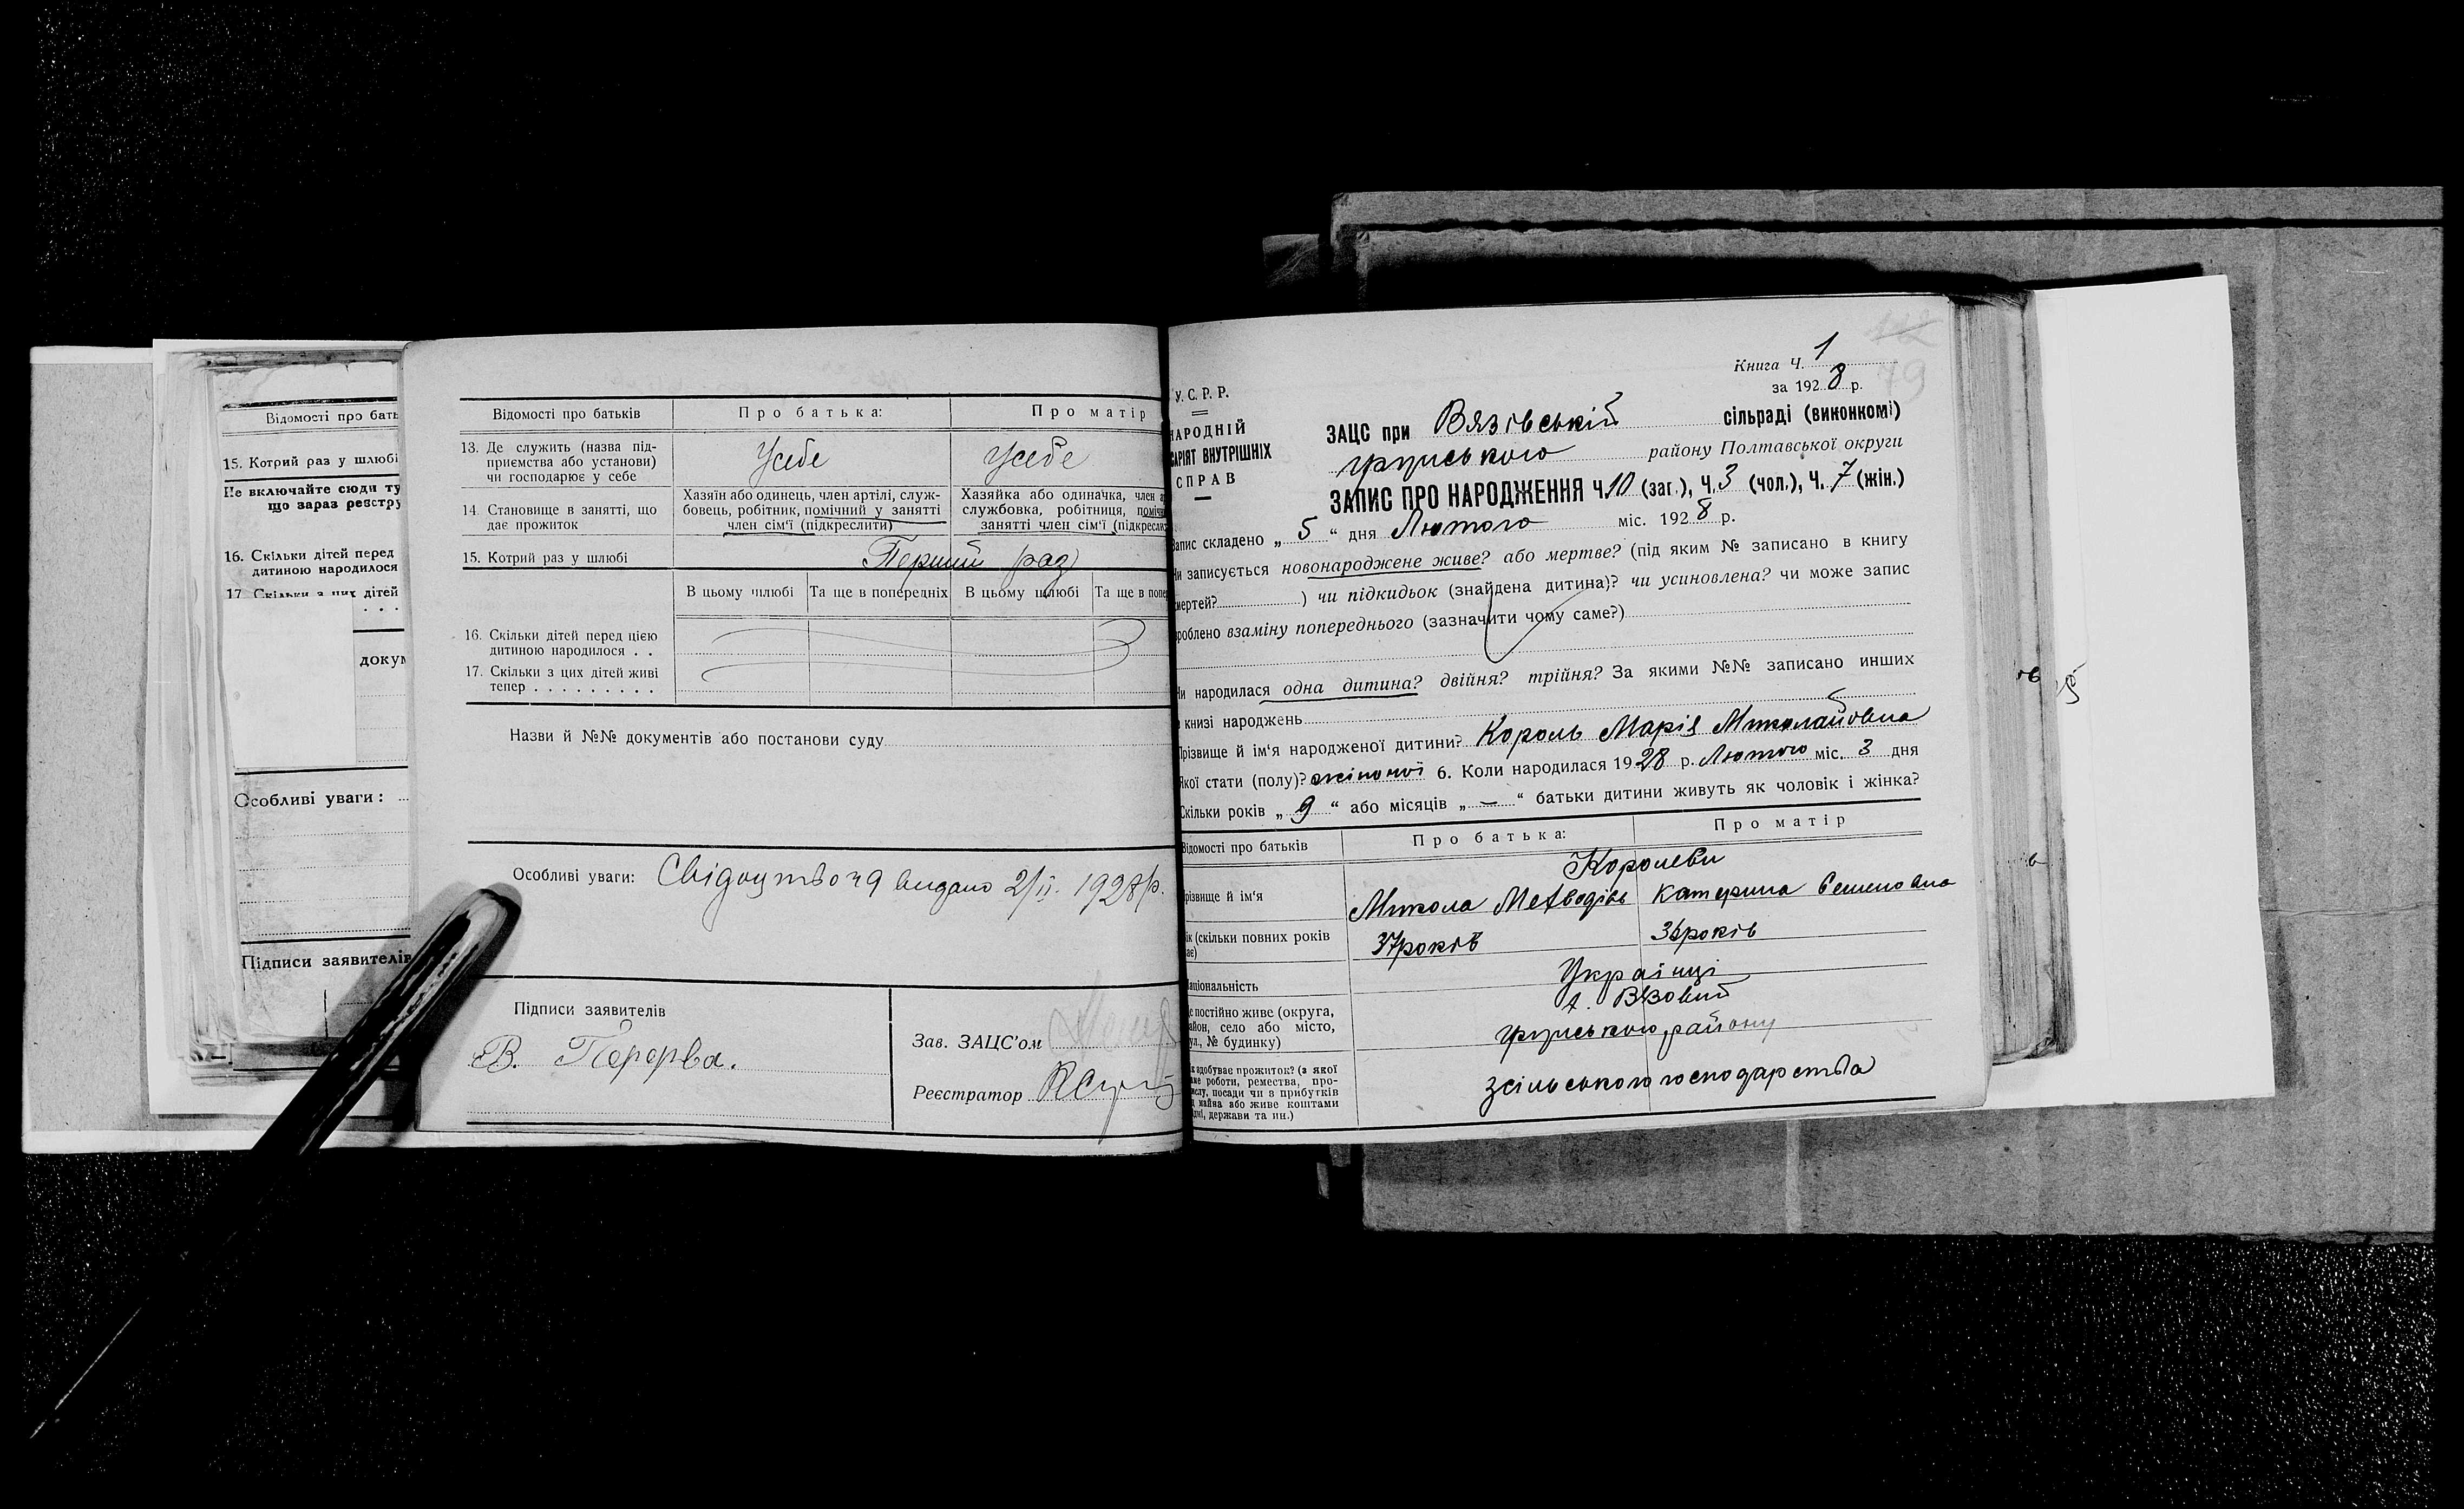 Відомості про бать
15. Котрий раз у шлюбі
Не включайте сюди ту
що зараз реєстру
16. Скільки дітей перед
дитиною народилося
17. Скільки з цих дітей
. . .
докум
Особливі уваги:
Підписи заявителів
Відомості про батьків
Про батька:
Про матір
13. Де служить (назва під-
приємства або установи)
чи господарює у себе
Усебе
Усебе
14. Становище в занятті, що
дає прожиток
Хазяїн або одинець, член артілі, служ-
бовець, робітник, помічний у занятті
член сім'ї (підкреслити)
Хазяйка або одиначка, член а
службовка, робітниця, поміч
занятті член сім'ї (підкресли
15. Котрий раз у шлюбі
Перший раз
В цьому шлюбі
Та ще в попередніх
В цьому шлюбі
Та ще в попе
16. Скільки дітей перед цією
дитиною народилося . .
17. Скільки з цих дітей живі
тепер . . . . . . . . .
Назви й №№ документів або постанови суду
Особливі уваги: Свідоцтво ч 9 видано 2/II. 1928 р.
Підписи заявителів
В. Перерва.
Зав. ЗАЦС'ом
Реєстратор
Книга Ч. 1
за 1928 р.
79
У.С.Р.Р.
НАРОДНІЙ
САРІЯТ ВНУТРІШНІХ
СПРАВ
ЗАЦС при Вязівській сільраді (виконкомі)
району Полтавської округи
ЗАПИС ПРО НАРОДЖЕННЯ Ч. 10 (заг.), Ч. 3 (чол.), Ч. 7 (жін.)
Запис складено „ 5 “ дня Лютого міс. 1928 р.
Чи записується новонароджене живе? або мертве? (під яким № записано в книгу
смертей? ) чи підкидьок (знайдена дитина)? чи усиновлена? чи може запис
зроблено взаміну попереднього (зазначити чому саме?)
Чи народилася одна дитина? двійня? трійня? За якими №№ записано инших
в книзі народжень
Прізвище й ім'я народженої дитини? Король Марія Миколайовна
Якої стати (полу)? жіночої 6. Коли народилася 1928 р. Лютого міс. 3 дня
Скільки років „ 9 “ або місяців „ — “ батьки дитини живуть як чоловік і жінка?
Відомості про батьків
Про батька:
Про матір
Королеви
Прізвище й ім'я
Микола Метводівь
Катерина Семеновна
Вік (скільки повних років
має)
37 років
років
Національність
Українці
Де постійно живе (округа,
район, село або місто,
вул., № будинку)
х. Вязовий
району
Як здобуває прожиток? (з якої
саме роботи, ремества, про-
мислу, посади чи з прибутків
від майна або живе коштами
рідні, держави та ин.)
зсільського господарства